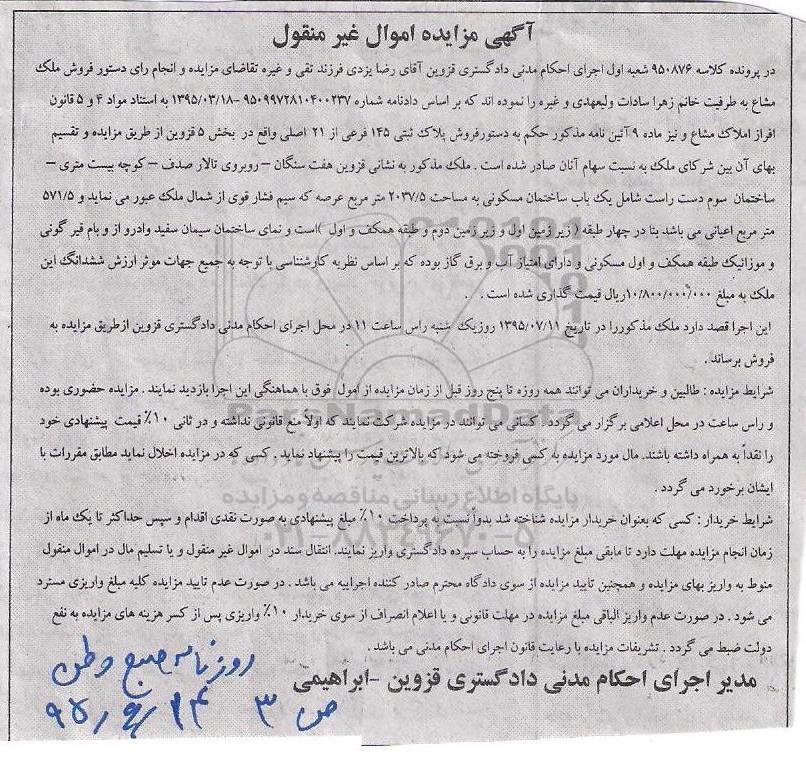 آگهی مزایده اموال غیر منقول
در پرونده کلاسه ۹۵۰۸۷۶ شعبه اول اجرای احکام مدنی دادگستری قزوین آقای رضا یزدی فرزند تقی و غیره تقاضای مزایده و انجام رای دستور فروش ملک
مشاع به طرفیت خانم زهرا سادات ولیعهدی و غیره را نموده اند که بر اساس دادنامه شماره ۹۵۰۹۹۷۲۸۱۰۴۰۰۲۳۷ –۱۳۹۵/۰۳/۱۸ به استناد مواد ۴ و ۵ قانون
افراز املاک مشاع و نیز ماده ۹ آئین نامه مذکور حکم به دستورفروش پلاک ثبتی ۱۴۵ فرعی از ۲۱ اصلی واقع در بخش ۵ قزوین از طریق مزایده و تقسیم
بهای آن بین شرکای ملک به نسبت سهام آنان صادر شده است . ملک مذکور به نشانی قزوین هفت سنگان –روبروی تالار صدف –کوچه بیست متری –
ساختمان سوم دست راست شامل یک باب ساختمان مسکونی به مساحت ۲۰۳۷/۵ متر مربع عرصه که سیم فشار قوی از شمال ملک عبور می نماید و ۵۷۱/۵
متر مربع اعیانی می باشد بنا در چهار طبقه ( زیر زمین اول و زیر زمین دوم و طبقه همکف و اول )است و نمای ساختمان سیمان سفید وادرو از و بام قیر گونی
و موزائیک طبقه همکف و اول مسکونی و دارای امتیاز آب و برق گاز بوده که بر اساس نظریه کارشناسی با توجه به جمیع جهات موثر ارزش ششدانگ این
ملک به مبلغ ۱۰/۸۰۰/۰۰۰/۰۰۰ریال قیمت گذاری شده است .
این اجرا قصد دارد ملک مذکوررا در تاریخ ۱۳۹۵/۰۷/۱۱ روزیک شنبه راس ساعت ۱۱ در محل اجرای احکام مدنی دادگستری قزوین ازطریق مزایده به
فروش برساند .
شرایط مزایده : طالبین و خریداران می توانند همه روزه تا پنج روز قبل از زمان مزایده از امول فوق با هماهنگی این اجرا بازدید نمایند . مزایده حضوری بوده
و راس ساعت در محل اعلامی برگزار می گردد . کسانی می توانند در مزایده شرکت نمایند که اولاً منع قانونی نداشته و در ثانی ۱۰٪ قیمت پیشنهادی خود
را نقداً به همراه داشته باشند. مال مورد مزایده به کسی فروخته می شود که بالاترین قیمت را پیشنهاد نماید . کسی که در مزایده اخلال نماید مطابق مقررات با
ایشان برخورد می گردد .
شرایط خریدار : کسی که بعنوان خریدار مزایده شناخته شد بدواً نسبت به پرداخت ۱۰٪ مبلغ پیشنهادی به صورت نقدی اقدام و سپس حداکثر تا یک ماه از
زمان انجام مزایده مهلت دارد تا مابقی مبلغ مزایده را به حساب سپرده دادگستری واریز نمایند. انتقال سند در اموال غیر منقول و یا تسلیم مال در اموال منقول
منوط به واریز بهای مزایده و همچنین تایید مزایده از سوی دادگاه محترم صادر کننده اجراییه می باشد . در صورت عدم تایید مزایده کلیه مبلغ واریزی مسترد
می شود . در صورت عدم واریز الباقی مبلغ مزایده در مهلت قانونی و یا اعلام انصراف از سوی خریدار ۱۰٪ واریزی پس از کسر هزینه های مزایده به نفع
دولت ضبط می گردد . تشریفات مزایده با رعایت قانون اجرای احکام مدنی می باشد .
مدیر اجرای احکام مدنی دادگستری قزوین -ابراهیمی
روزنامه صبح وطن
ص ۳ ۹۵/۶/۱۴
ParsNamadData
پایگاه اطلاع رسانی مناقصه و مزایده
۰۲۱-۸۸۳۴۹۶۷۰-۵